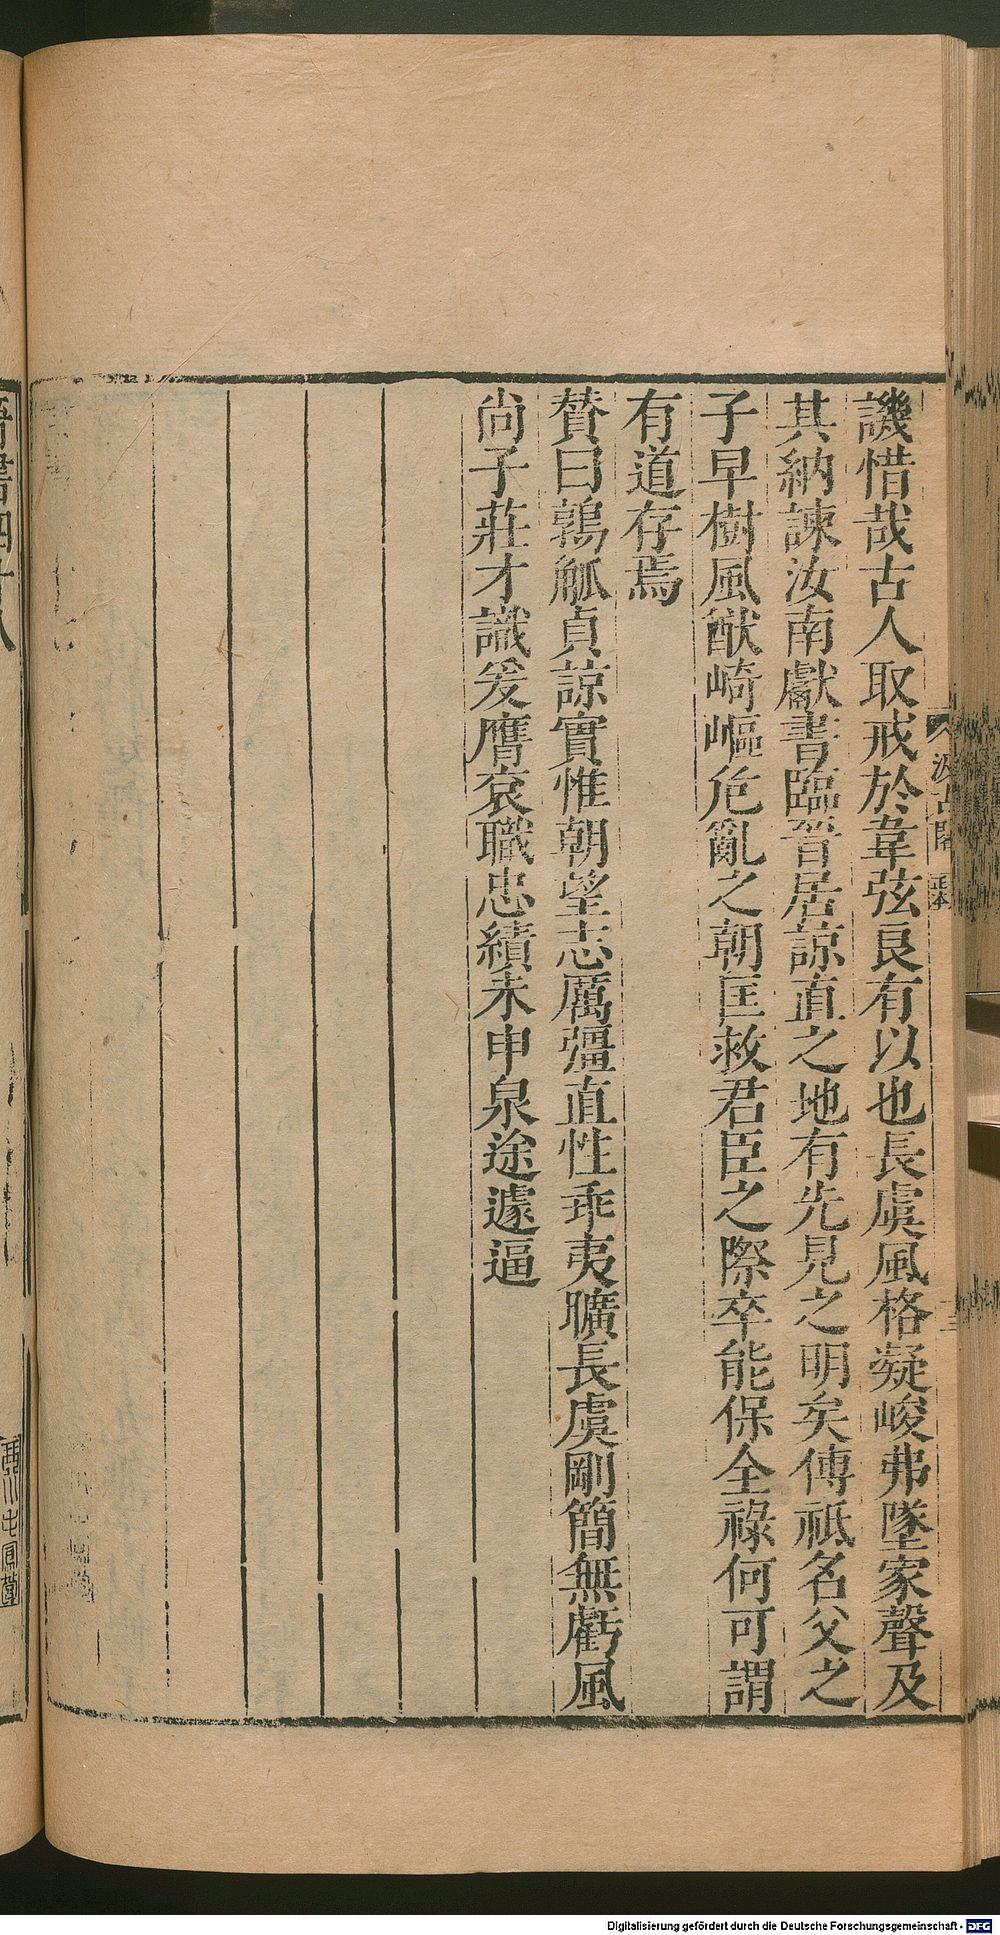 汲古閣
正本
譏惜哉古人取戒於韋弦良有以也長虞風格凝峻弗墜家聲及
其納諫汝南獻書臨晉居諒直之地有先見之明矣傅祗名父之
子早樹風猷崎嶇危亂之朝匡救君臣之際卒能保全祿何可謂
有道存焉
贊曰鶉觚貞諒實惟朝望志厲彊直性乖夷曠長虞剛簡無虧風
尚子莊才識爰膺袞職忠績未申泉途遽逼
晉書四十八
Digitalisierung gefördert durch die Deutsche Forschungsgemeinschaft - DFG